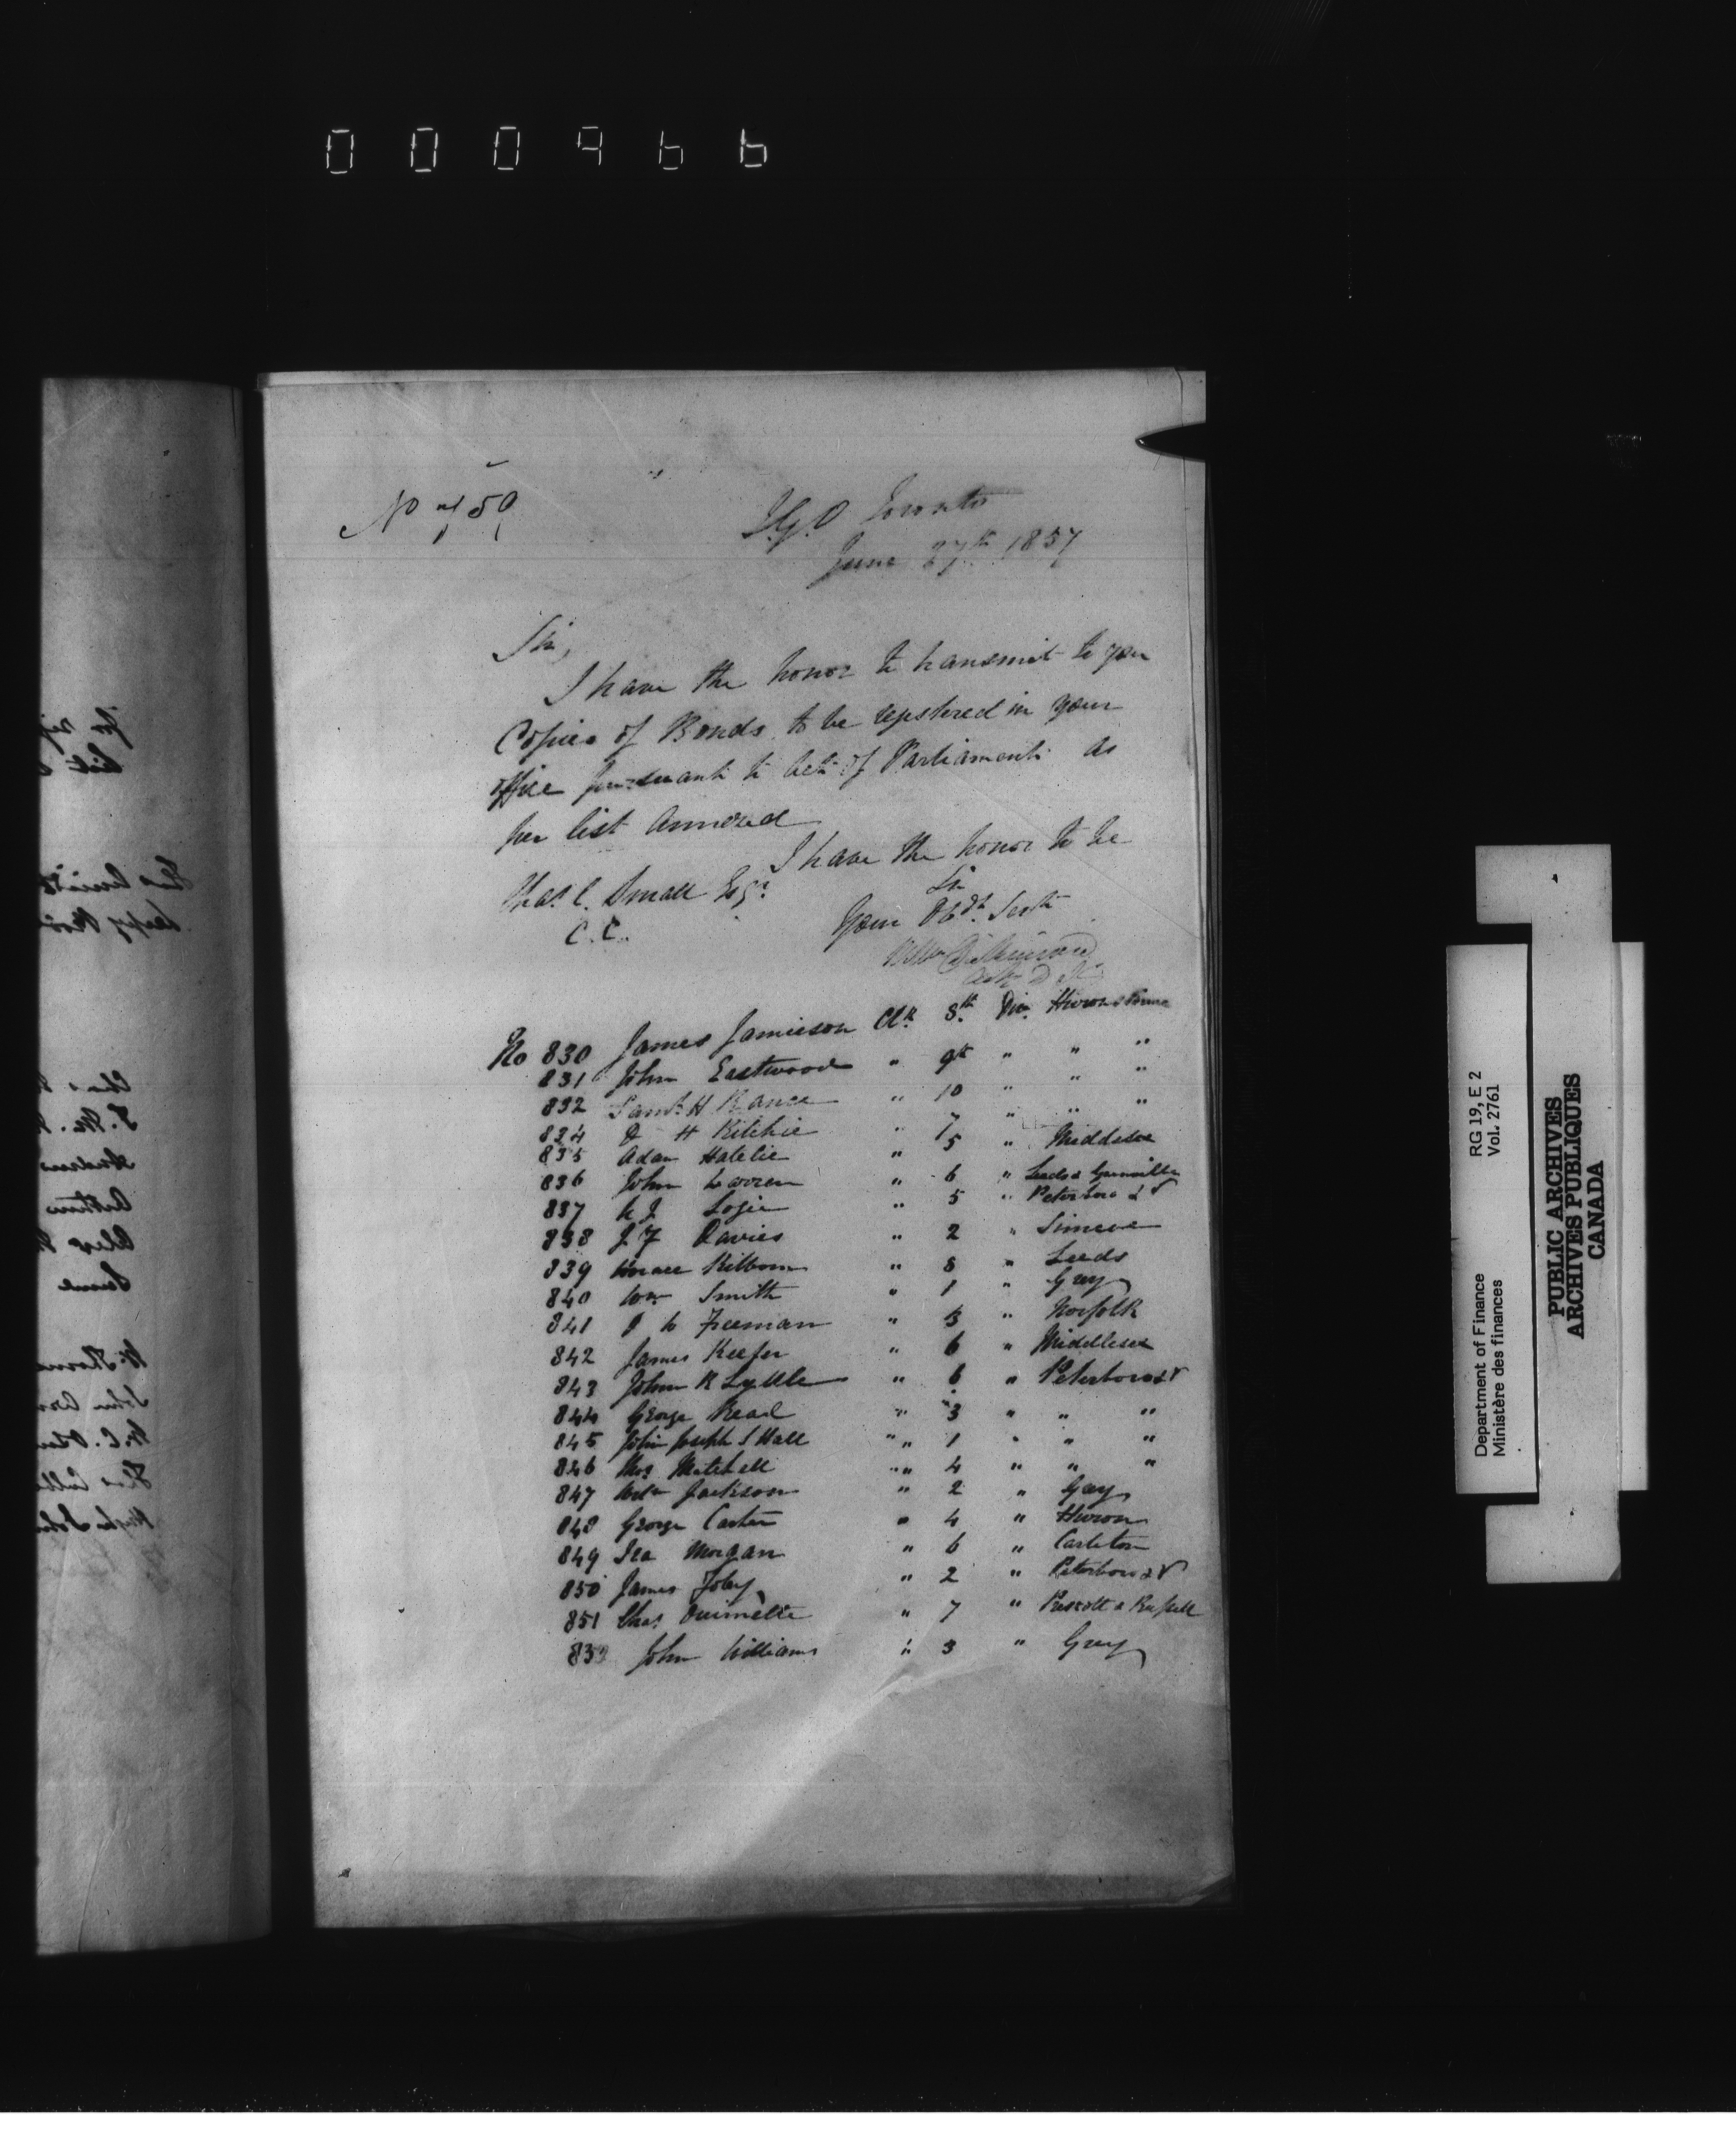 000966
No 459
I.G.O Toronto
June 27th 1857
Sir,
I have the honor to transmit to you
Copies of Bonds to be registered in your
office pursuant to Act of Parliament as
per list annexed
I have the honor to be
Sir
Your Obdt. Servt
Chas. C. Small Esqr.
C.C.
Wm Dickinson
No 830 James Jamieson Clk 8th Div. Huron & Bruce
831 John Eastwood " 9th " " "
832 Saml. H Rance " 10 " " "
834 D H Ritchie " 7 " " "
835 Adam Hatelie " 5 " Middlesex
836 John Warren " 6 " Leeds & Grenville
837 W J Logie " 5 " Peterboro & V
838 J F Davies " 2 " Simcoe
839 Horace Kilborn " 8 " Leeds
840 Wm Smith " 1 " Grey
841 J W Freeman " 3 " Norfolk
842 James Keefer " 6 " Middlesex
843 John R Lyttle " 6 " Peterboro & V
844 George Read " 3 " " "
845 John Joseph S Hall " " 1 " " "
846 Thos Mitchell " " 4 " " "
847 Wm Jackson " 2 " Grey
848 George Carter " 4 " Huron
849 Ira Morgan " 6 " Carleton
850 James Foley " 2 " Peterboro & V
851 Chas Ouimette " 7 " Prescott & Russell
852 John Williams " 3 " Grey
Department of Finance RG 19, E 2
Ministère des finances Vol. 2761
PUBLIC ARCHIVES
ARCHIVES PUBLIQUES
CANADA